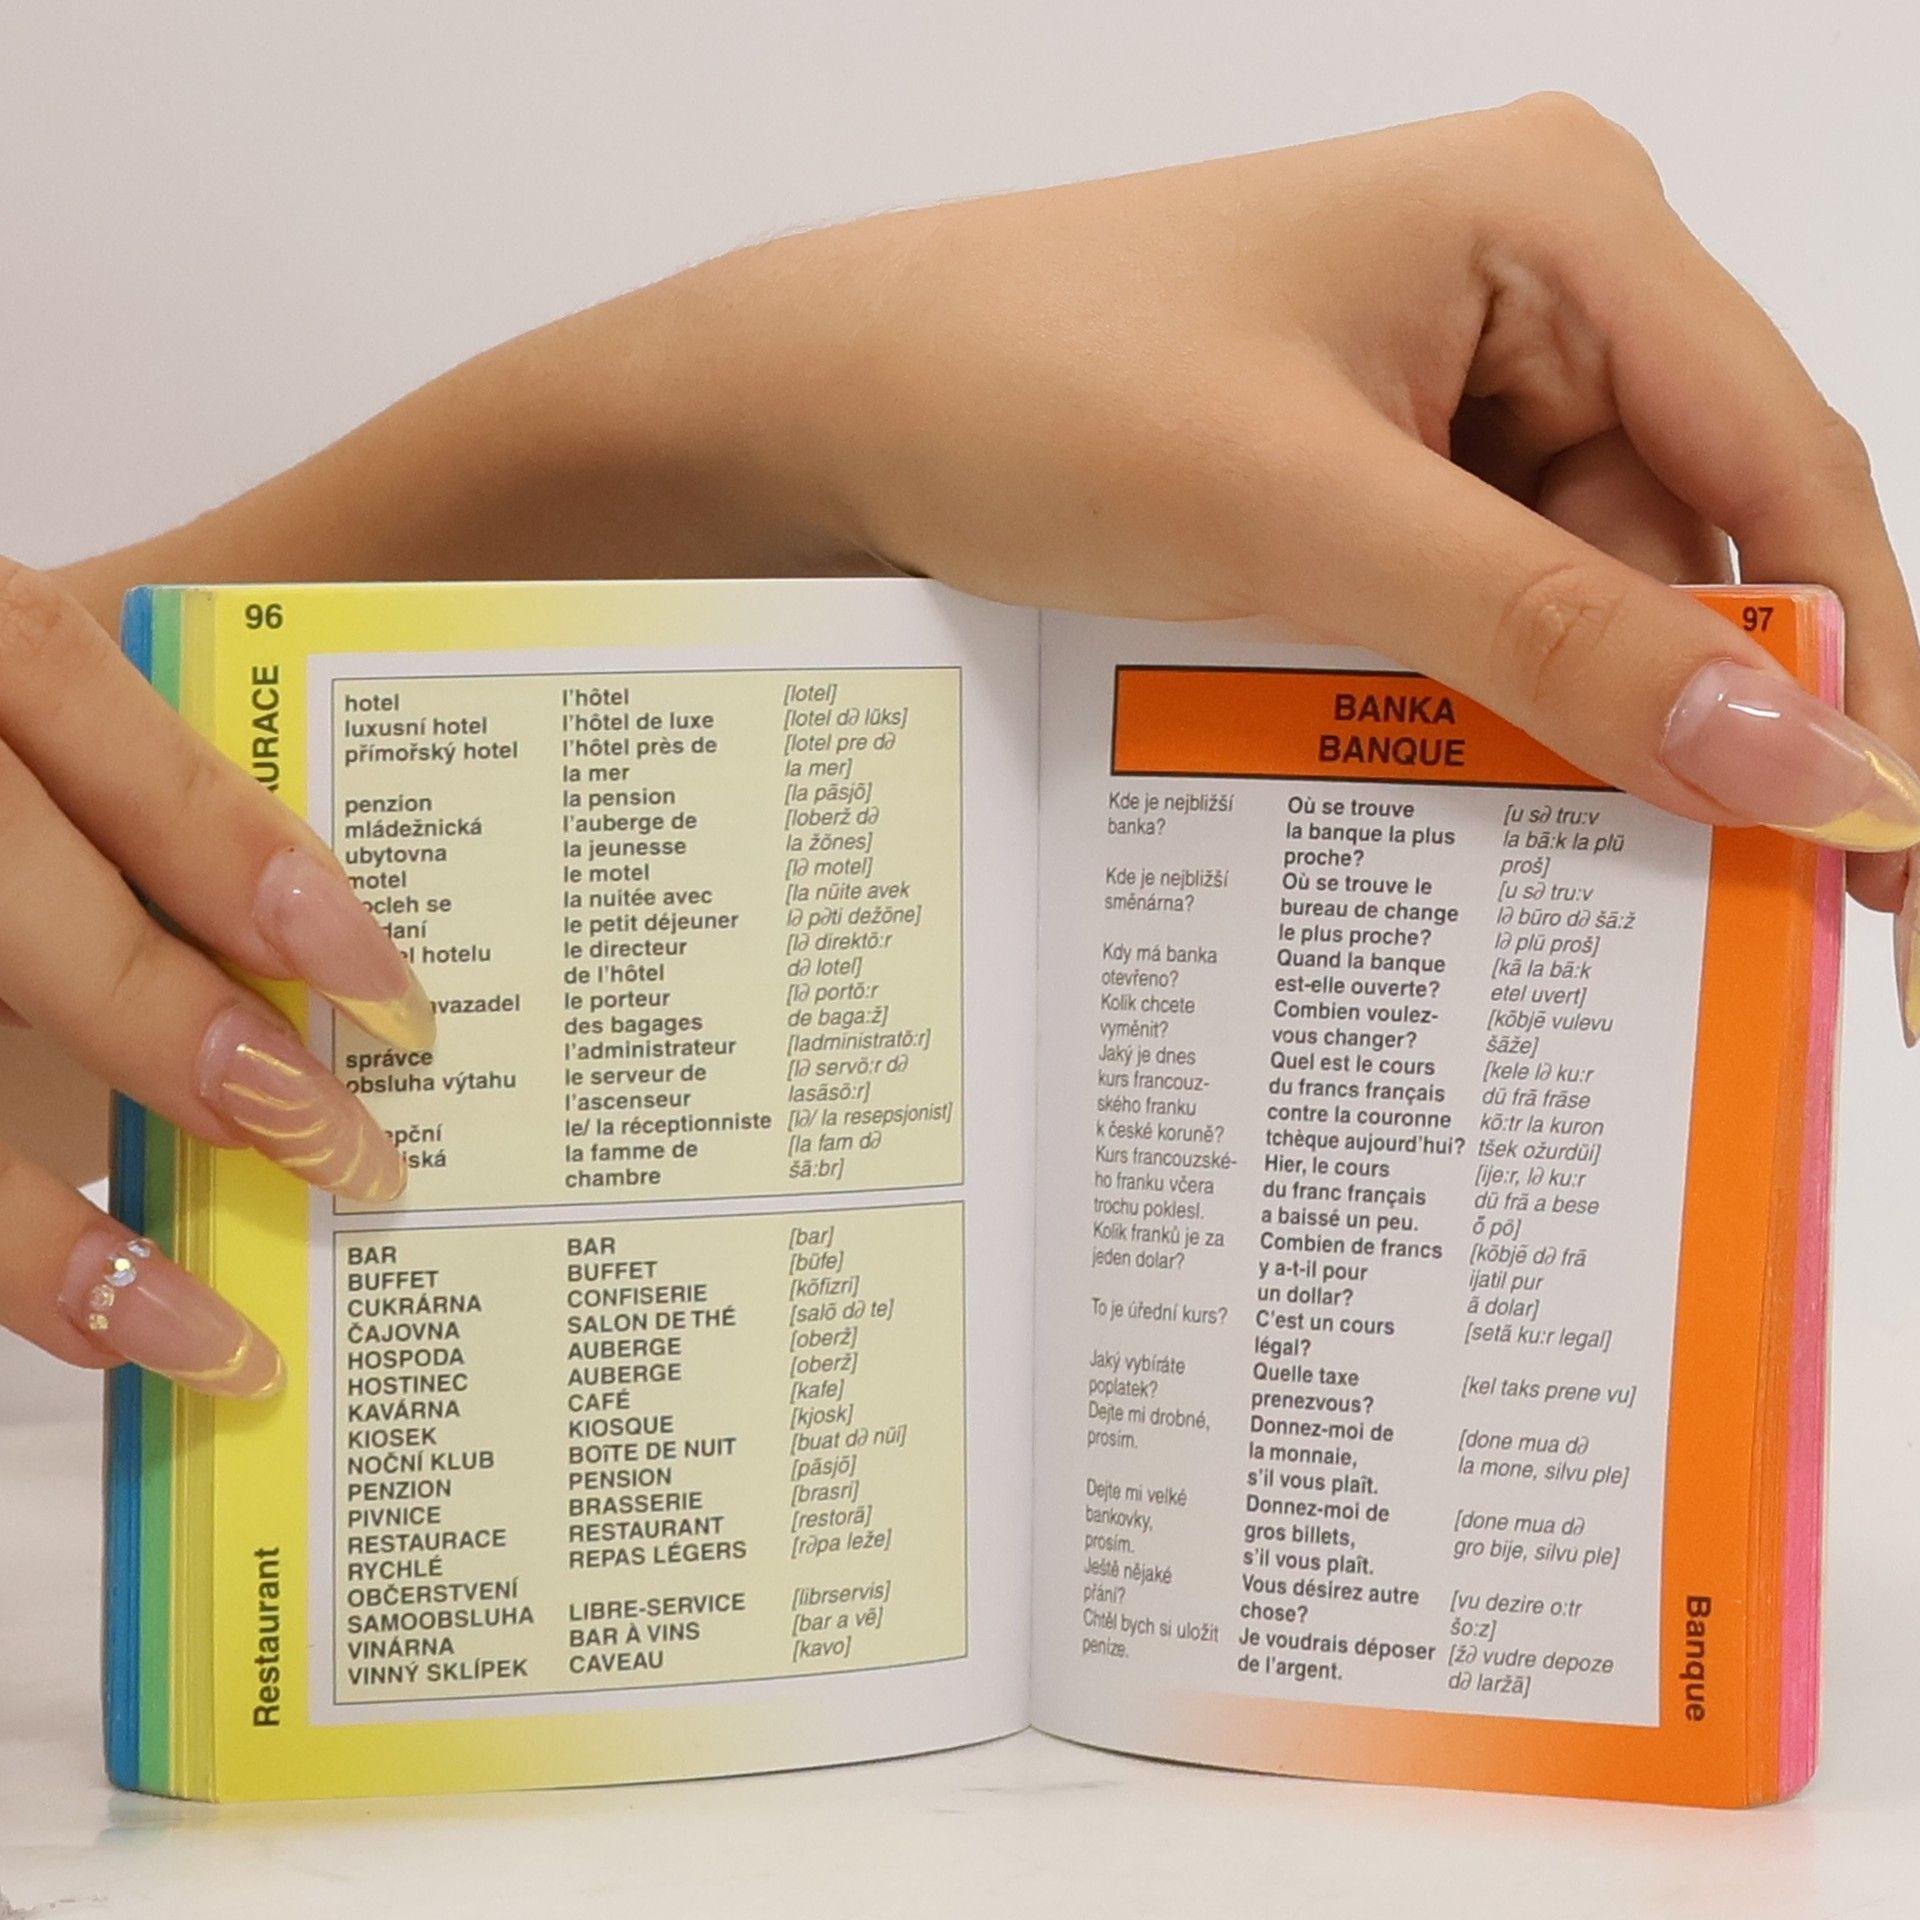 96
Restaurant
hotel l'hôtel [lotel]
luxusní hotel l'hôtel de luxe [lotel də lüks]
přímořský hotel l'hôtel près de [lotel pre də
la mer la mer]
penzion la pension [la pãsjõ]
mládežnická l'auberge de [loberž də
ubytovna la jeunesse la žönes]
le motel [lə motel]
se la nuitée avec [la nüite avek
le petit déjeuner lə pəti dežöne]
hotelu le directeur [lə direktö:r
de l'hôtel də lotel]
le porteur [lə portö:r
des bagages de baga:ž]
správce l'administrateur [ladministratö:r]
obsluha výtahu le serveur de [lə servö:r də
l'ascenseur lasãsö:r]
le/ la réceptionniste [lə/ la resepsjonist]
la famme de [la fam də
chambre šã:br]
BAR BAR [bar]
BUFFET BUFFET [büfe]
CUKRÁRNA CONFISERIE [kõfizri]
ČAJOVNA SALON DE THÉ [salõ də te]
HOSPODA AUBERGE [oberž]
HOSTINEC AUBERGE [oberž]
KAVÁRNA CAFÉ [kafe]
KIOSEK KIOSQUE [kjosk]
NOČNÍ KLUB BOîTE DE NUIT [buat də nüi]
PENZION PENSION [pãsjõ]
PIVNICE BRASSERIE [brasri]
RESTAURACE RESTAURANT [restorã]
RYCHLÉ REPAS LÉGERS [rəpa leže]
OBČERSTVENÍ
SAMOOBSLUHA LIBRE-SERVICE [librservis]
VINÁRNA BAR À VINS [bar a vẽ]
VINNÝ SKLÍPEK CAVEAU [kavo]
97
BANKA
BANQUE
Kde je nejbližší Où se trouve [u sə tru:v
banka? la banque la plus la bã:k la plü
proche? proš]
Kde je nejbližší Où se trouve le [u sə tru:v
směnárna? bureau de change lə büro də šã:ž
le plus proche? lə plü proš]
Kdy má banka Quand la banque [kã la bã:k
otevřeno? est-elle ouverte? etel uvert]
Kolik chcete Combien voulez- [kõbjẽ vulevu
vyměnit? vous changer? šãže]
Jaký je dnes Quel est le cours [kele lə ku:r
kurs francouz- du francs français dü frã frãse
ského franku contre la couronne kõ:tr la kuron
k české koruně? tchèque aujourd'hui? tšek ožurdüi]
Kurs francouzské- Hier, le cours [ije:r, lə ku:r
ho franku včera du franc français dü frã a bese
trochu poklesl. a baissé un peu. õ pö]
Kolik franků je za Combien de francs [kõbjẽ də frã
jeden dolar? y a-t-il pour ijatil pur
un dollar? ã dolar]
To je úřední kurs? C'est un cours [setã ku:r legal]
légal?
Jaký vybíráte Quelle taxe [kel taks prene vu]
poplatek? prenezvous?
Dejte mi drobné, Donnez-moi de [done mua də
prosím. la monnaie, la mone, silvu ple]
s'il vous plaît.
Dejte mi velké Donnez-moi de [done mua də
bankovky, gros billets, gro bije, silvu ple]
prosím. s'il vous plaît.
Ještě nějaké Vous désirez autre [vu dezire o:tr
přání? chose? šo:z]
Chtěl bych si uložit Je voudrais déposer [žə vudre depoze
peníze. de l'argent. də laržã]
Banque